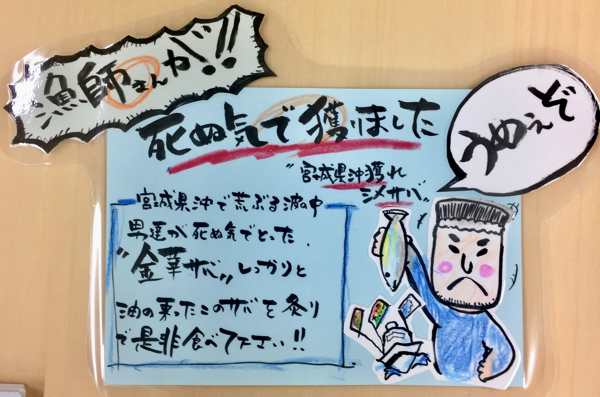 漁師さんが!!
死ぬ気で獲りました
うめぇど
"宮城県沖獲れ
シメサバ"
宮城県沖で荒ぶる波の中
男達が死ぬ気でとった、
"金華サバ"しっかりと
油の乗ったこのサバを炙り
で是非食べて下さい!!